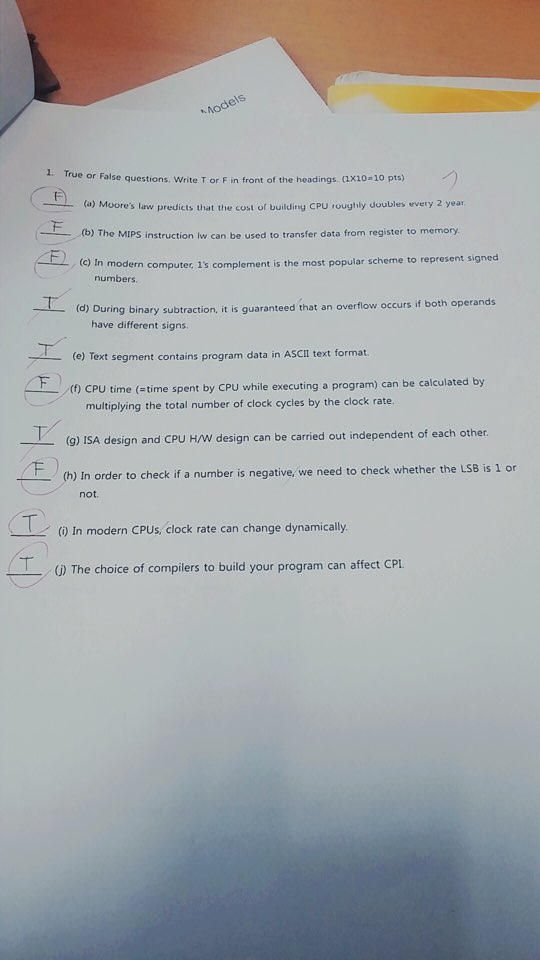 Models
1. True or False questions. Write T or F in front of the headings. (1X10=10 pts) 7
F (a) Moore's law predicts that the cost of building CPU roughly doubles every 2 year.
F (b) The MIPS instruction lw can be used to transfer data from register to memory.
F (c) In modern computer, 1's complement is the most popular scheme to represent signed
numbers.
T (d) During binary subtraction, it is guaranteed that an overflow occurs if both operands
have different signs.
T (e) Text segment contains program data in ASCII text format.
F (f) CPU time (=time spent by CPU while executing a program) can be calculated by
multiplying the total number of clock cycles by the clock rate.
T (g) ISA design and CPU H/W design can be carried out independent of each other.
F (h) In order to check if a number is negative, we need to check whether the LSB is 1 or
not.
T (i) In modern CPUs, clock rate can change dynamically.
T (j) The choice of compilers to build your program can affect CPI.